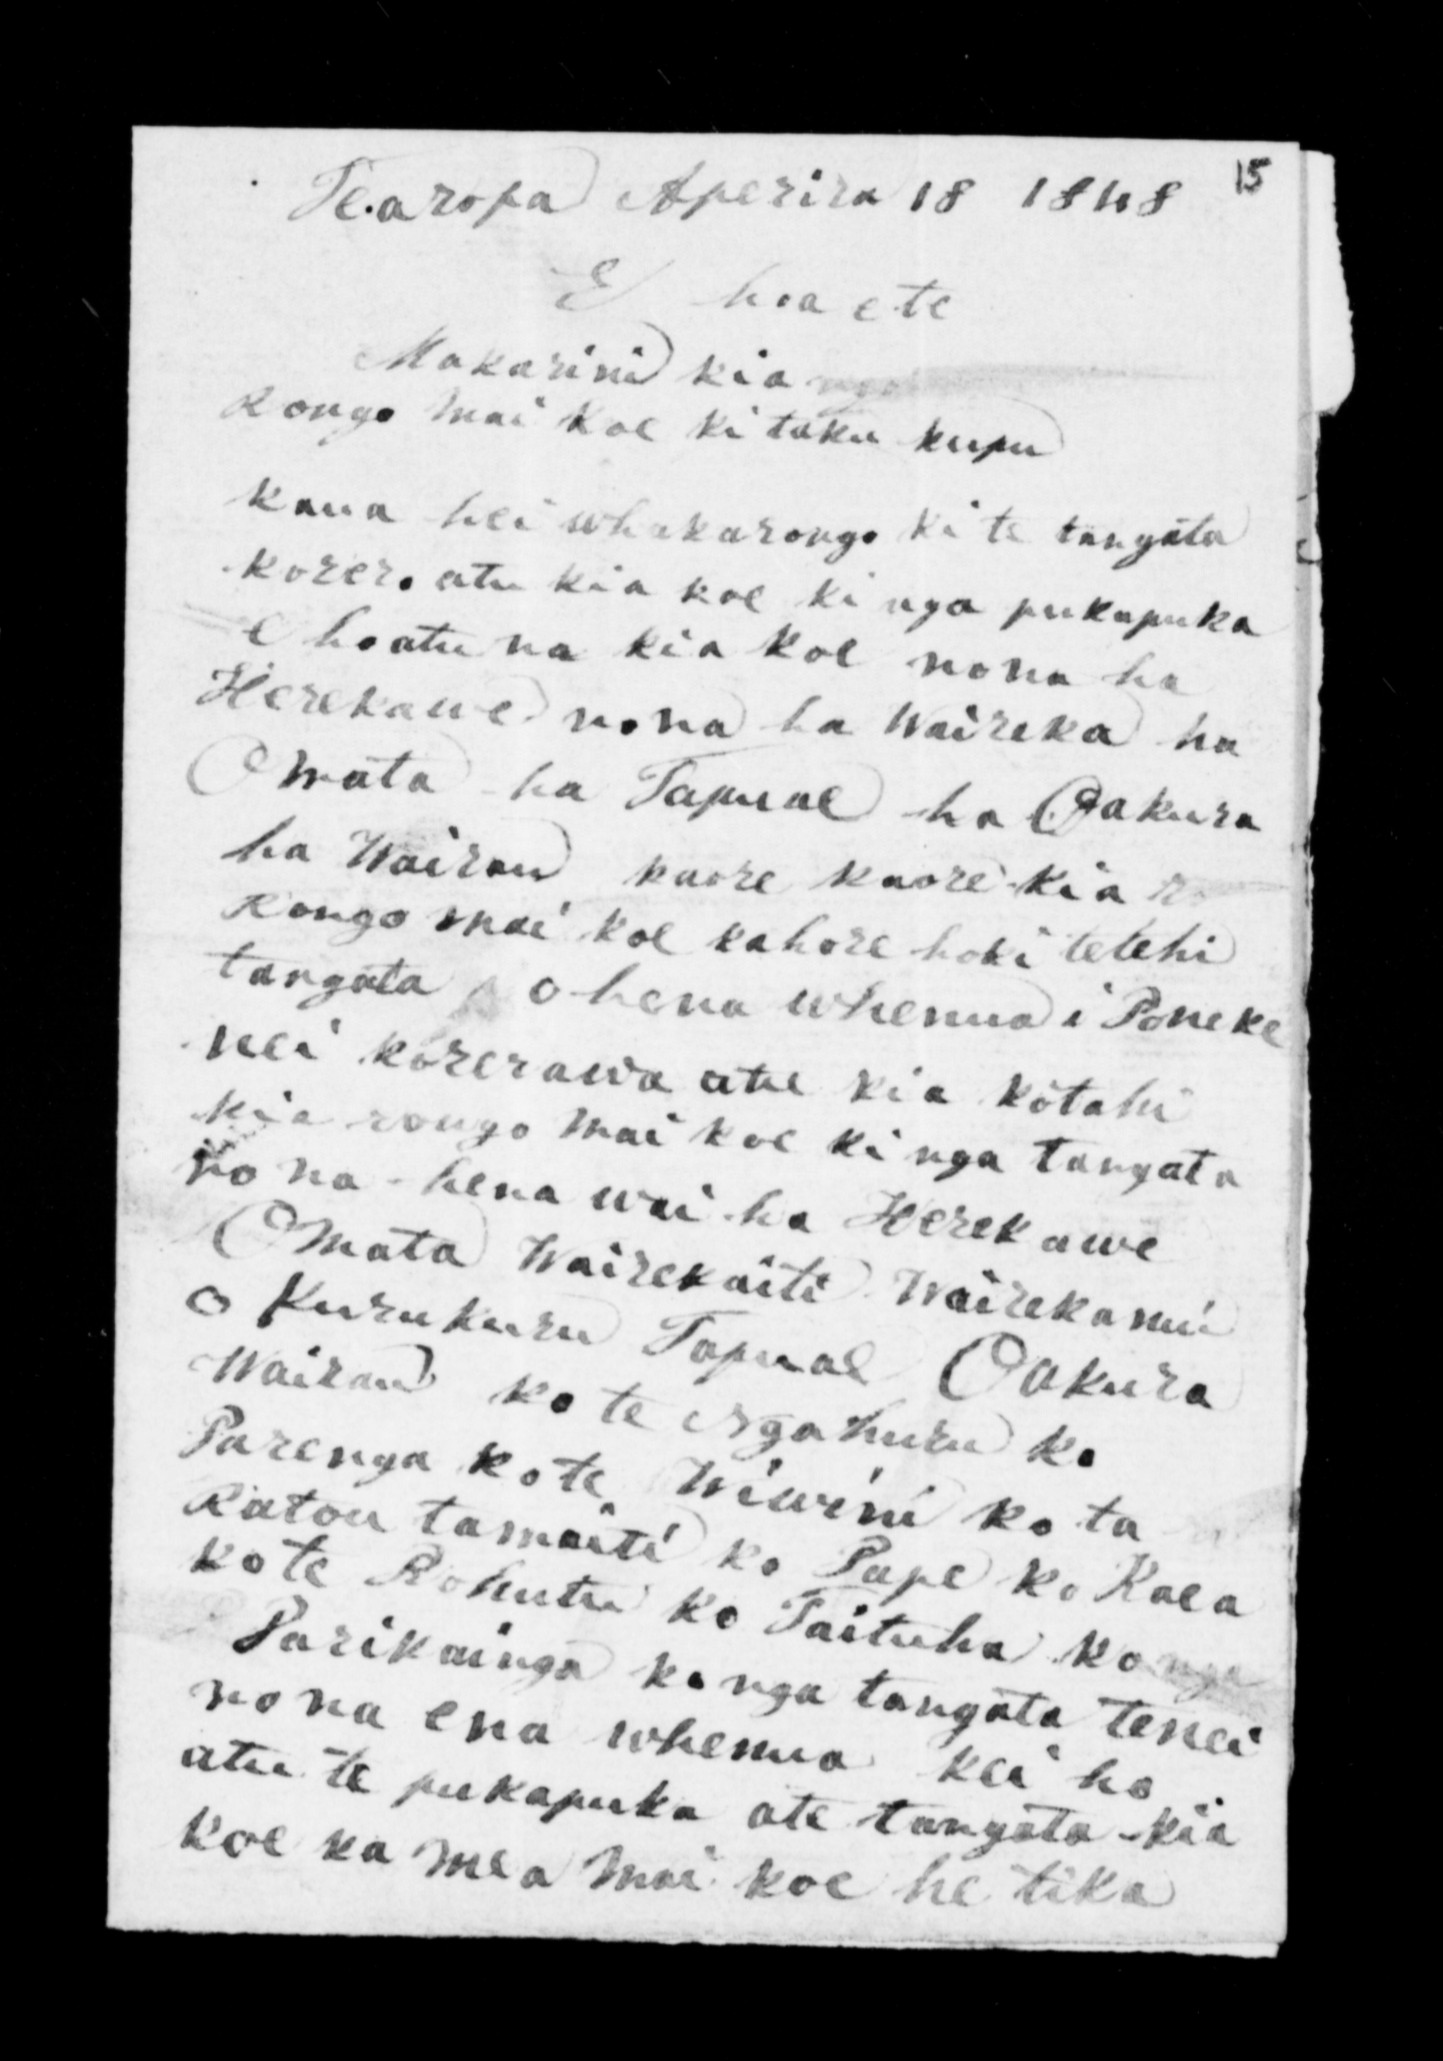 15
Te.aropa Aperira 18 1848
E hoa e te
Makarini kia nga
Rongo mai koe ki taku kupu
kaua hei whakarongo ki te tangata
korero atu kia koe ki nga pukapuka
e hoatu na kia koe nona ha
Herekawe nona ha Waireka ha
Omata ha Tapuae ha Oakura
ha Wairau kaore kaore kia r
Rongo mai koe kahore hoki tetehi
tangata o hena whenua i Poneke
nei korerawa atu kia kotahi
kia rongo mai koe ki nga tangata
no na hena wai ha Herekawe
Omata Wairekaiti Wairekanui
o Kurukuru Tapuae Oakura
Wairau ko te Ngahuru ko
Parenga ko te Wiwini ko ta
Ratou tamaiti ko Pape ko Kaea
ko te Rohutu ko Taituha ko nga
Parikainga ko nga tangata tenei
nona ena whenua kei ho
atu te pukapuka ate tangata kia
koe ka mea mai koe he tika